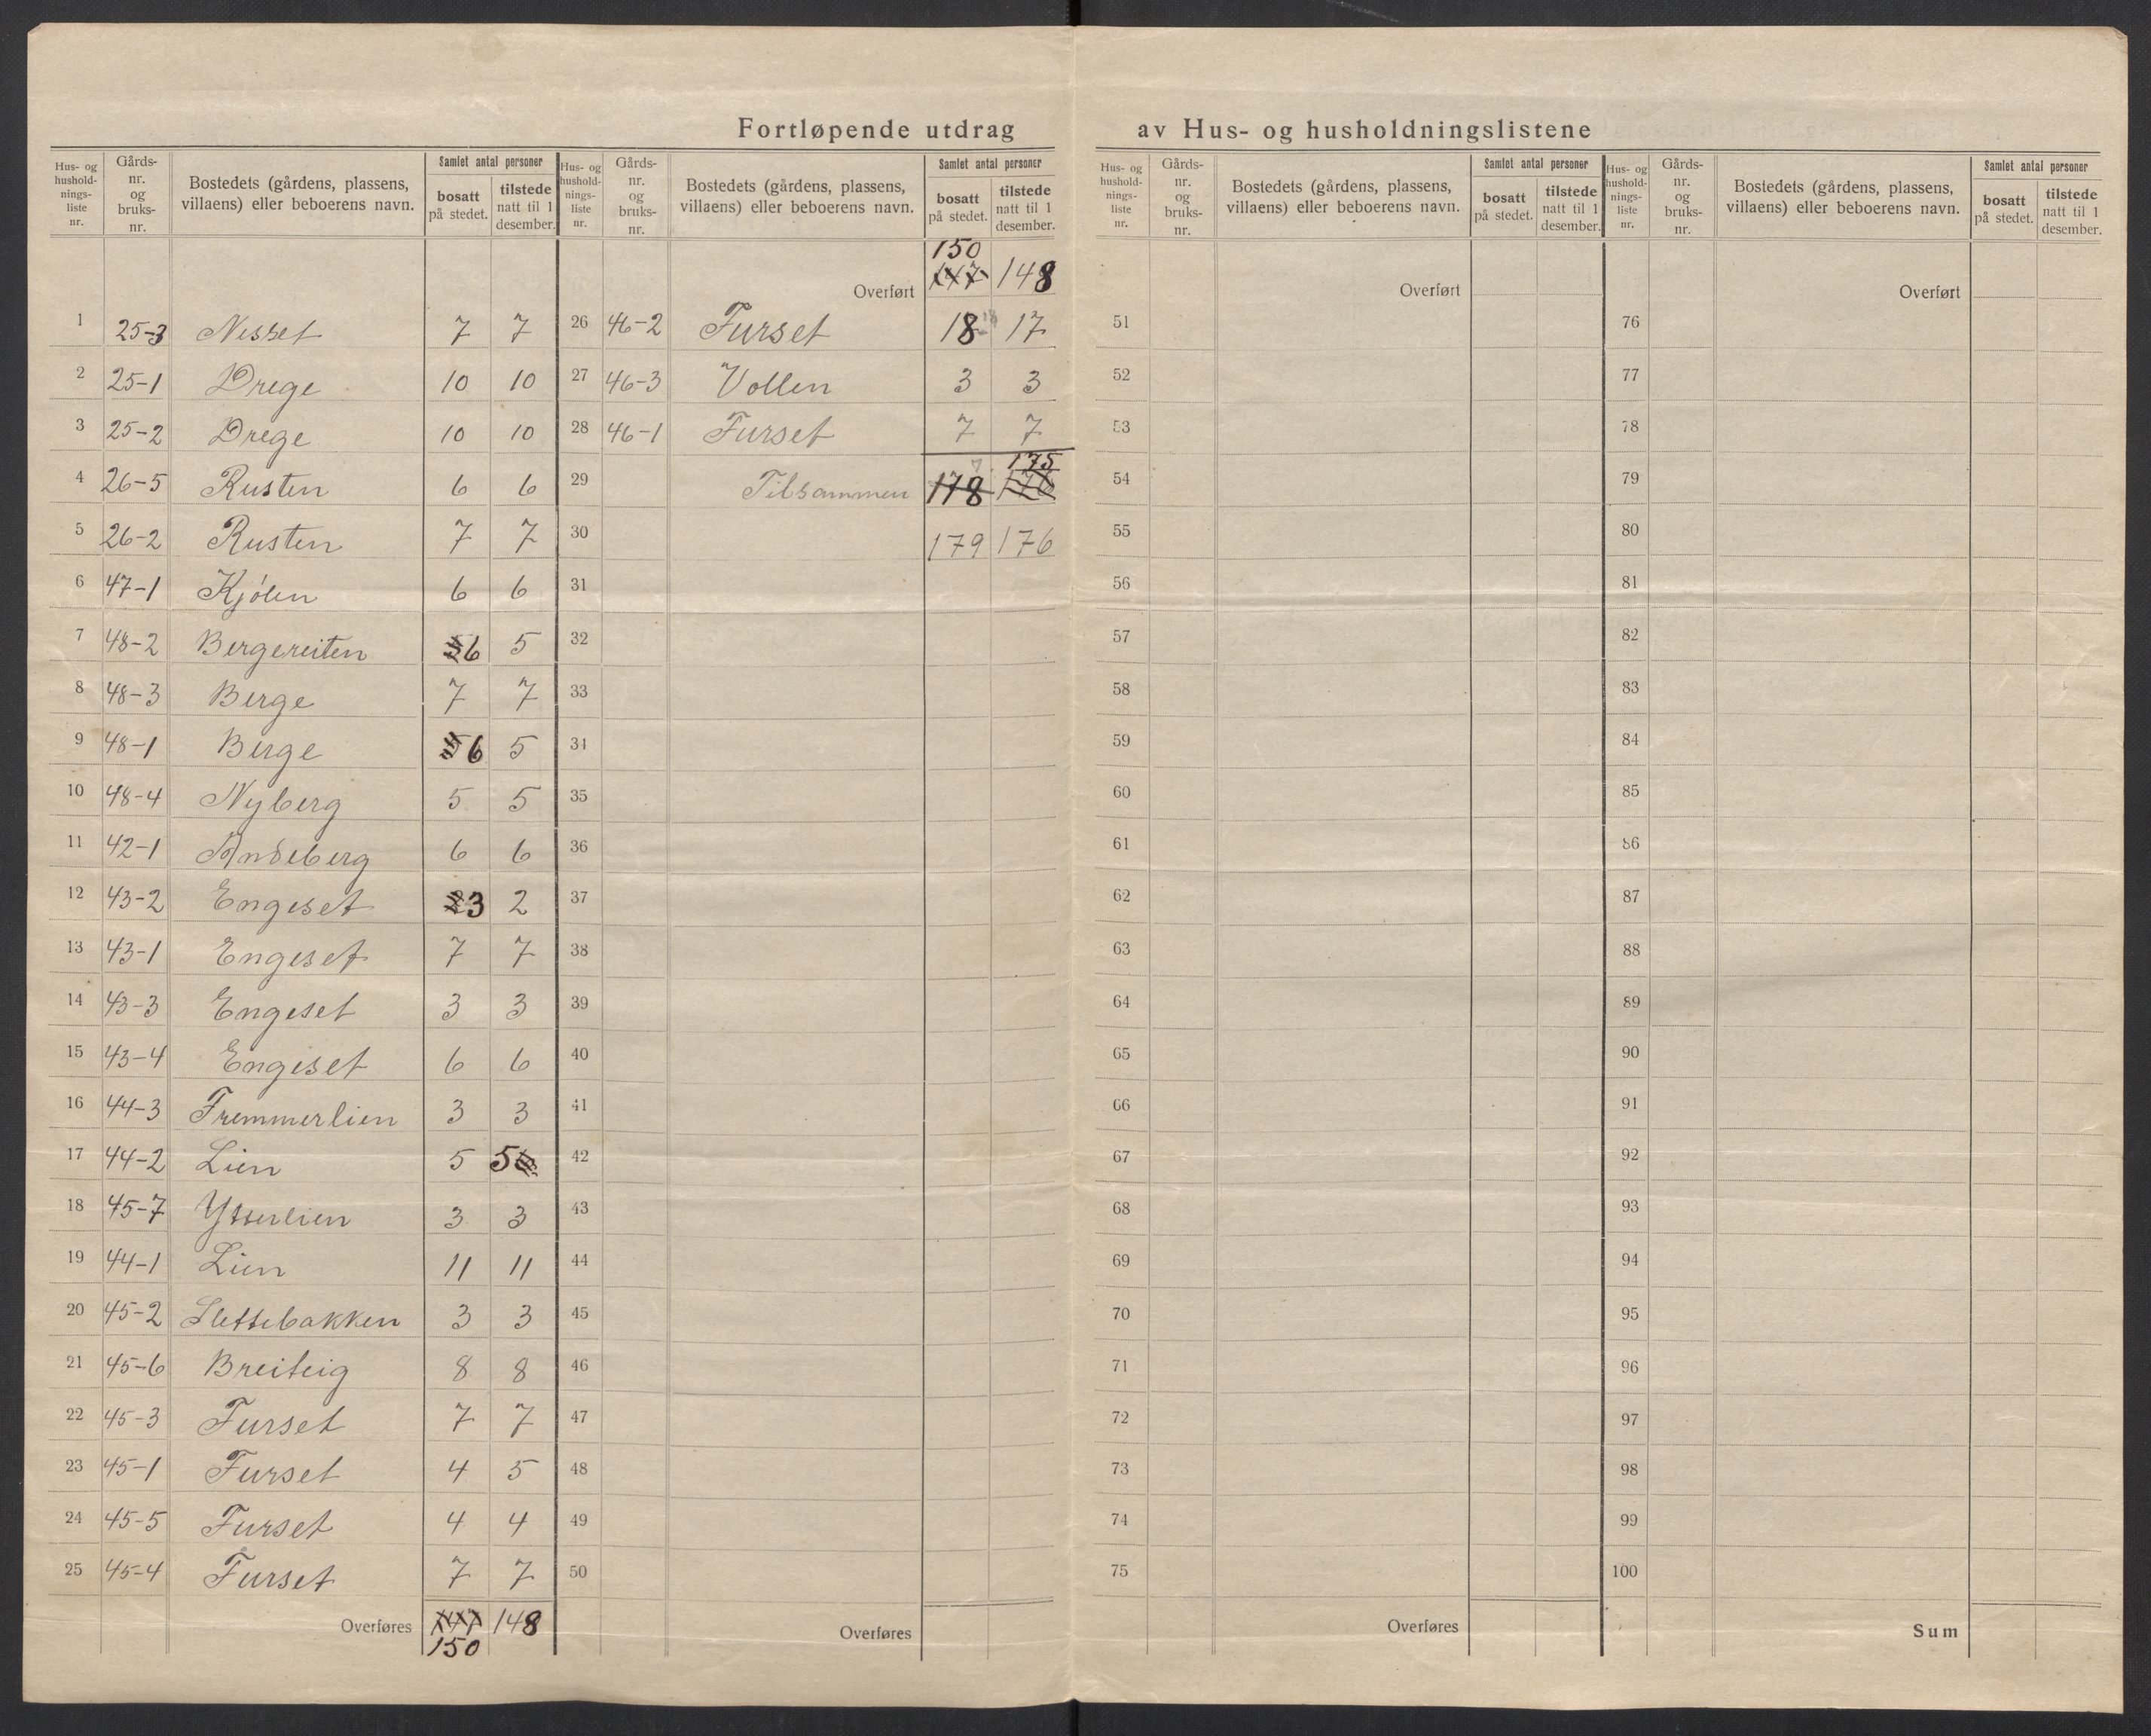 Fortløpende utdrag av Hus- og husholdningslistene
Hus- og husholdnings- liste nr. | Gårds- nr. og bruks- nr. | Bostedets (gårdens, plassens, villaens) eller beboerens navn. | Samlet antal personer | bosatt på stedet. | tilstede natt til 1 desember.
1 25-3 Nesset 7 7
2 25-1 Drege 10 10
3 25-2 Drege 10 10
4 26-5 Rusten 6 6
5 26-2 Rusten 7 7
6 47-1 Kjölen 6 6
7 48-2 Bergereiten 5 6 5
8 48-3 Berge 7 7
9 48-1 Berge 6 5
10 48-4 Nyberg 5 5
11 42-1 Andeberg 6 6
12 43-2 Engeset 2 3 2
13 43-1 Engeset 7 7
14 43-3 Engeset 3 3
15 43-4 Engeset 6 6
16 44-3 Fremmerlien 3 3
17 44-2 Lien 5 5 6
18 45-7 Ytterlien 3 3
19 44-1 Lien 11 11
20 45-2 Slettebakken 3 3
21 45-6 Breiteig 8 8
22 45-3 Furset 7 7
23 45-1 Furset 4 5
24 45-5 Furset 4 4
25 45-4 Furset 7 7
Overføres 147 148
150
Hus- og husholdnings- liste nr. | Gårds- nr. og bruks- nr. | Bostedets (gårdens, plassens, villaens) eller beboerens navn. | Samlet antal personer | bosatt på stedet. | tilstede natt til 1 desember.
150
Overført 147 148
26 46-2 Furset 18 17
27 46-3 Vollen 3 3
28 46-1 Furset 7 7
175
29 Tilsammen 178 176
30 179 176
31
32
33
34
35
36
37
38
39
40
41
42
43
44
45
46
47
48
49
50
Overføres
Hus- og husholdnings- liste nr. | Gårds- nr. og bruks- nr. | Bostedets (gårdens, plassens, villaens) eller beboerens navn. | Samlet antal personer | bosatt på stedet. | tilstede natt til 1 desember.
Overført
51
52
53
54
55
56
57
58
59
60
61
62
63
64
65
66
67
68
69
70
71
72
73
74
75
Overføres
Hus- og husholdnings- liste nr. | Gårds- nr. og bruks- nr. | Bostedets (gårdens, plassens, villaens) eller beboerens navn. | Samlet antal personer | bosatt på stedet. | tilstede natt til 1 desember.
Overført
76
77
78
79
80
81
82
83
84
85
86
87
88
89
90
91
92
93
94
95
96
97
98
99
100
Sum